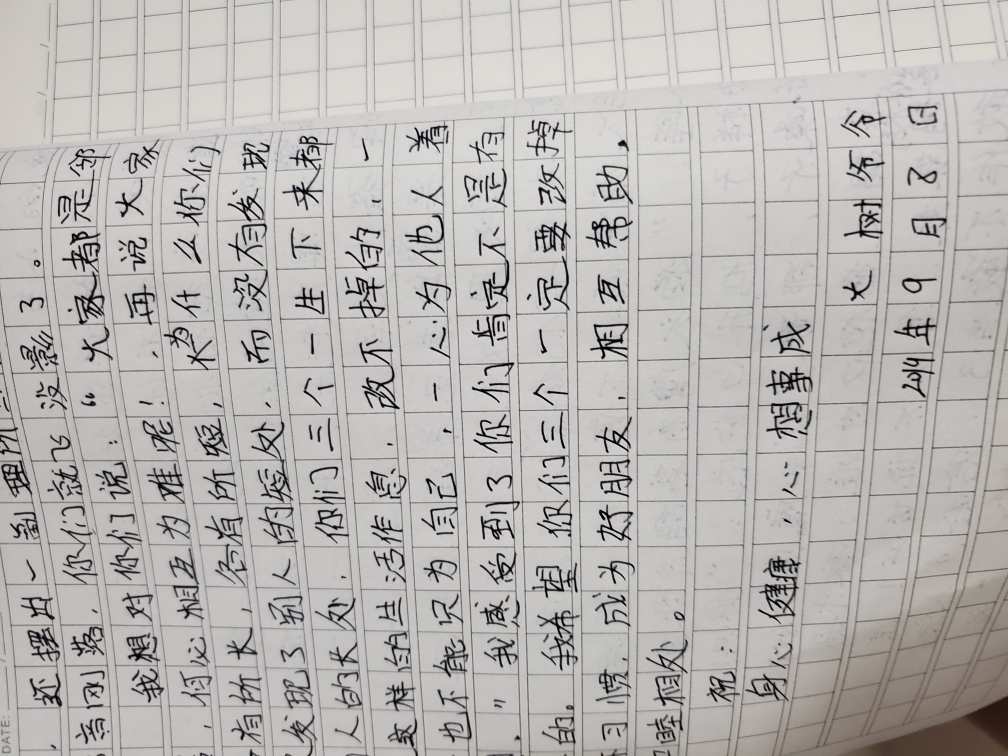 DATE:
还摆出一副理所
为刚落，你们就飞没影了。
我想对你们说：“大家都是邻
，何必相互为难呢！，再说大家
有所长，各有所短，为什么你们
发现了别人的短处，而没有发现
人的长处，你们三个一生下来都
这样的生活作息，改不掉的，一
也不能只为自己，一心为他人着
。” 我感受到了你们肯定不是有
的。我希望你们三个一定要改掉
习惯，成为好朋友，相互帮助，
睦相处。
祝：
身心健康，心想事成
大树爷爷
2019年9月8日